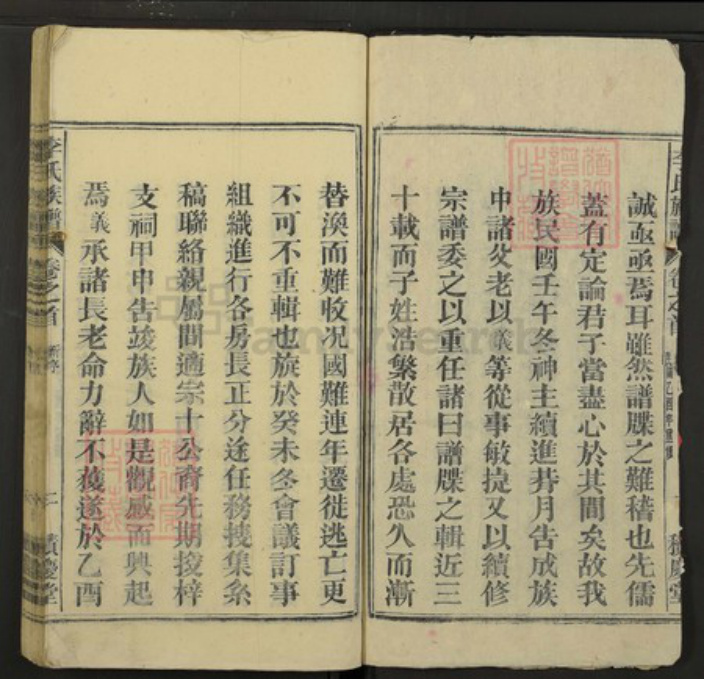 誠亟亟焉耳雖然譜牒之難稽也先儒
蓋有定論君子當盡心於其間矣故我
族民國壬午冬神主續進朞月告成族
中諸父老以議等從事敏捷又以續修
宗譜委之以重任諸曰譜牒之輯近三
十載而子姓浩繁散居各處恐久而漸
替渙而難收况國難連年遷徙逃亡更
不可不重輯也旗於癸未冬會議訂事
組織進行各房長正分途任務搜集糸
稿聯絡親屬間適宗十公裔先期授梓
支祠甲申告竣族人如是觀感而興起
焉議承諸長老命力辭不獲遂於乙酉
李氏族譜
卷之首
積慶堂
李氏族譜
卷之首
新序
二
積慶堂
FamilySearch